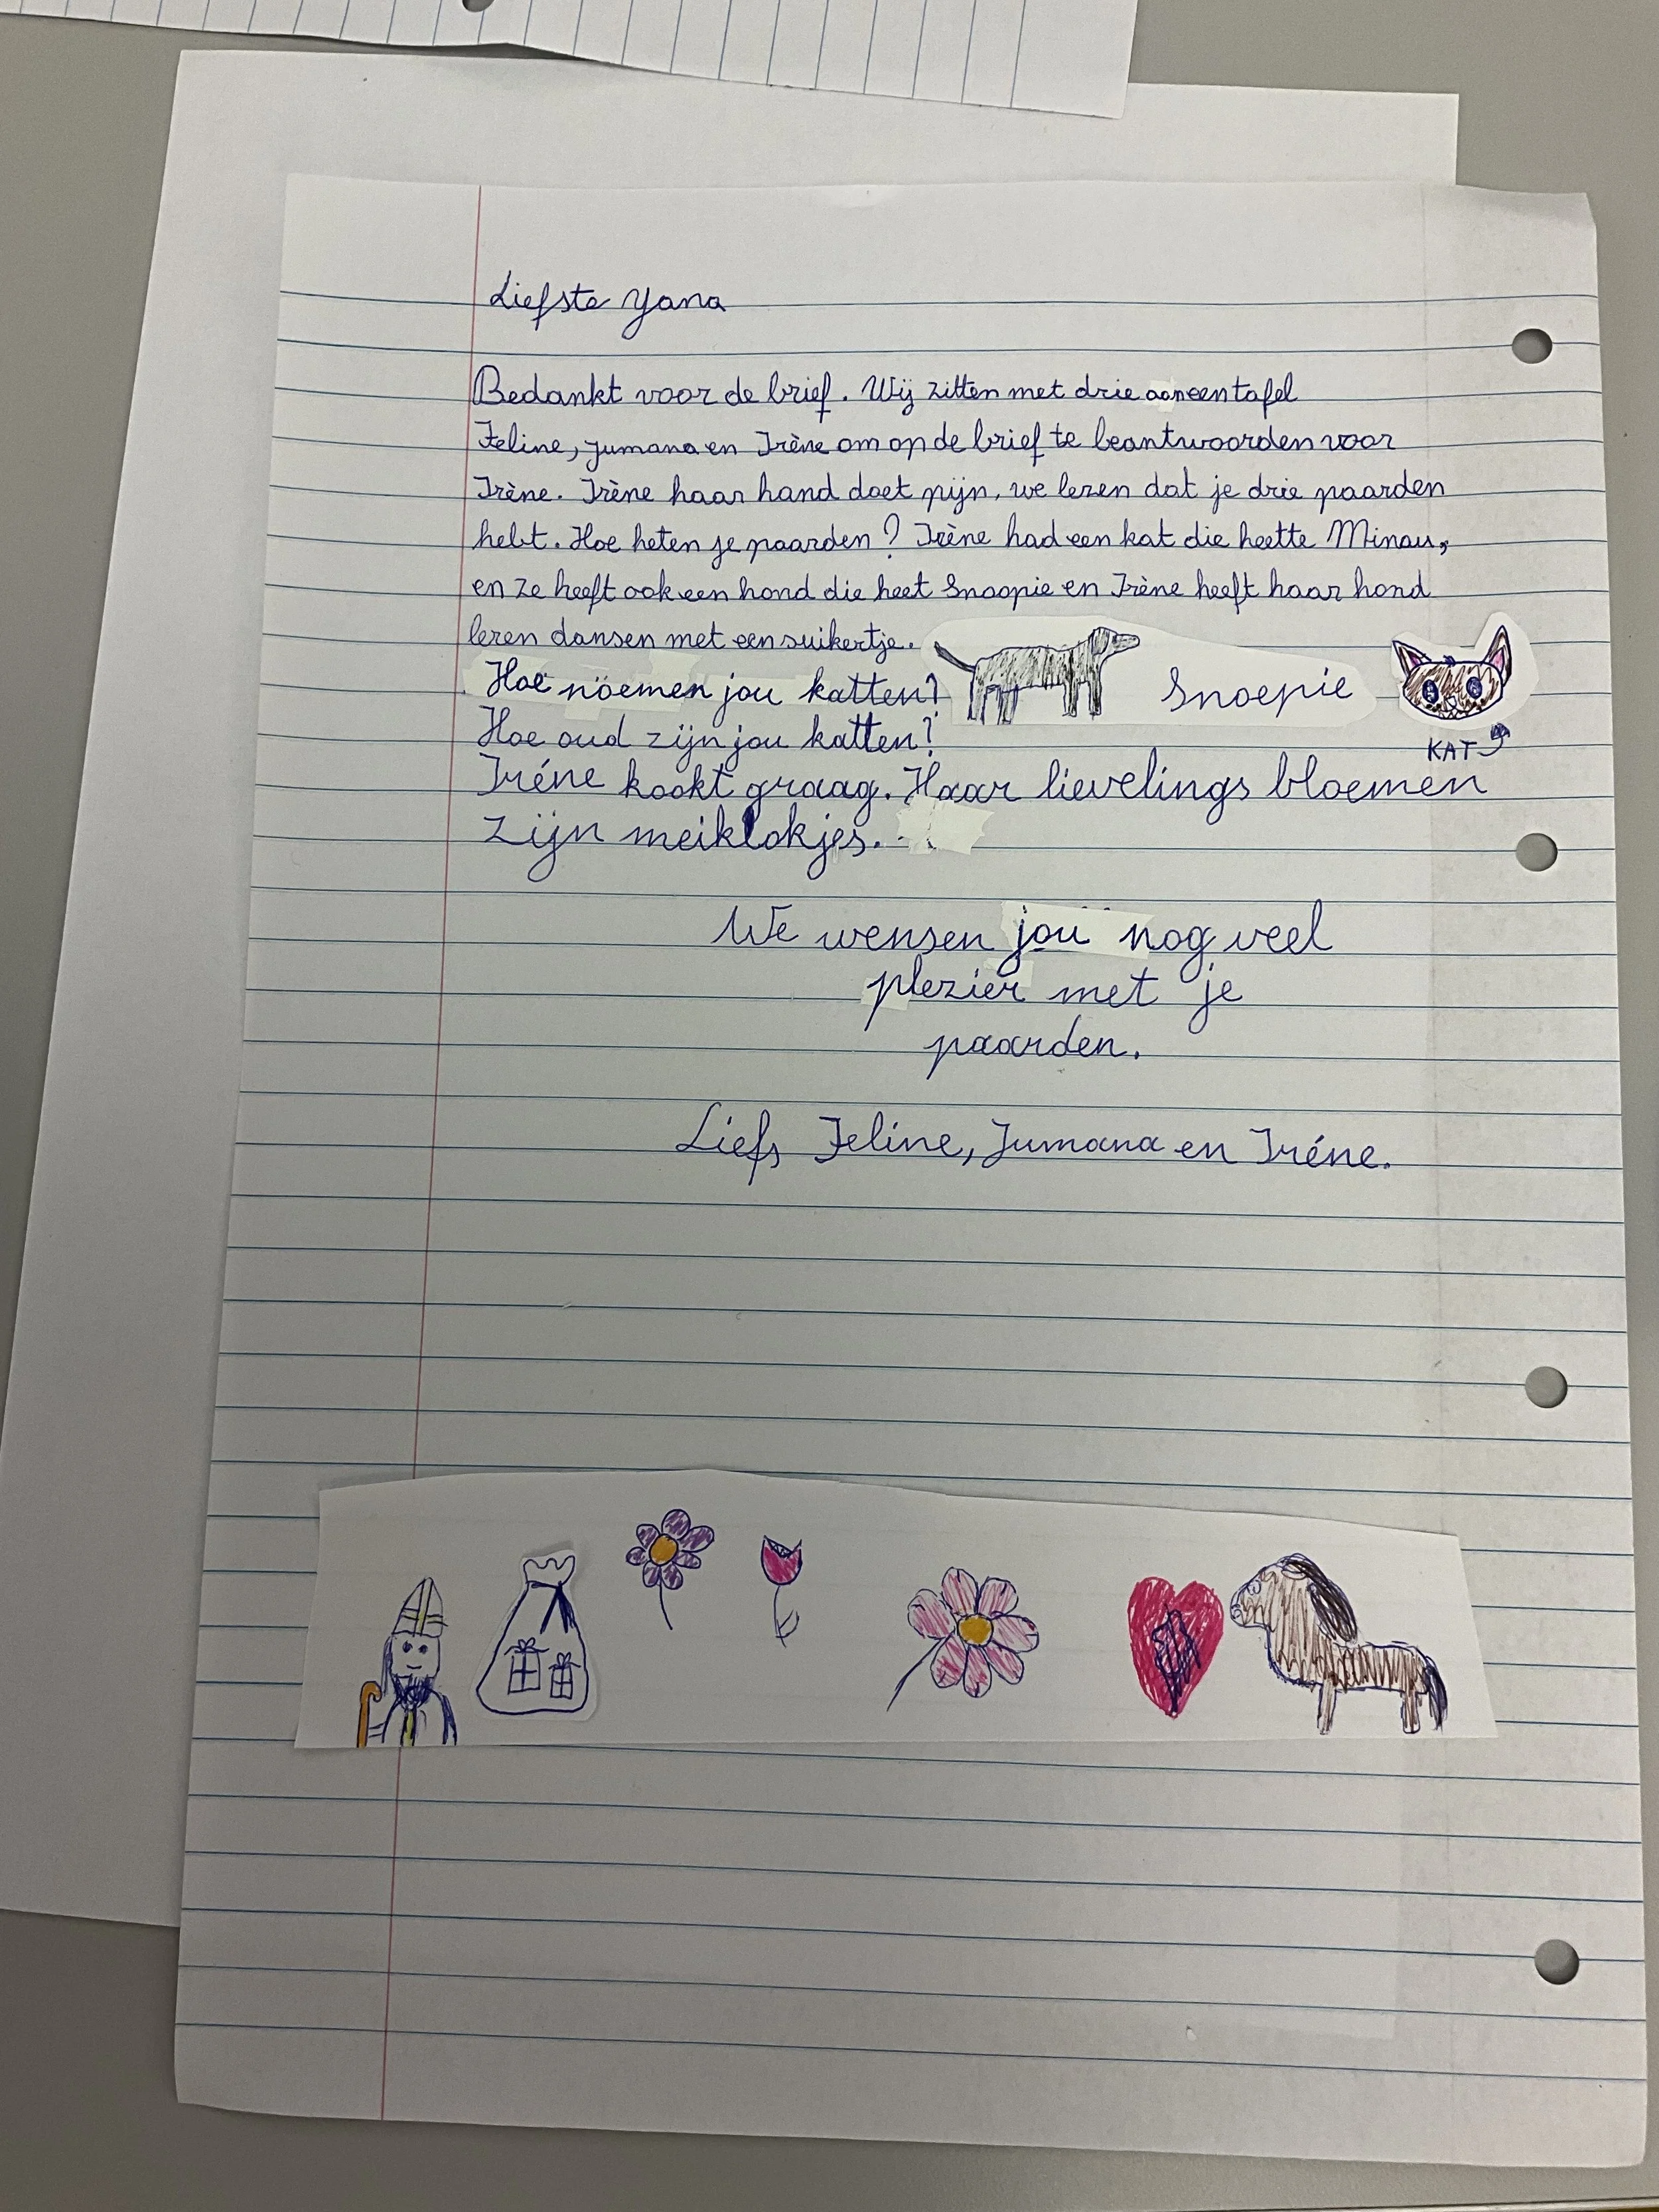 Liefste Yana
Bedankt voor de brief. Wij zitten met drie aan een tafel
Feline, Jumana en Irène om op de brief te beantwoorden voor
Irène. Irène haar hand doet pijn, we lezen dat je drie paarden
hebt. Hoe heten je paarden? Irène had een kat die heette Minou,
en ze heeft ook een hond die heet Snoopie en Irène heeft haar hond
leren dansen met een suikertje.
Hoe noemen jou katten?
Snoepie
Hoe oud zijn jou katten?
KAT
Iréne kookt graag. Haar lievelings bloemen
zijn meiklokjes.
We wensen jou nog veel
plezier met je
paarden.
Liefs Feline, Jumana en Iréne.